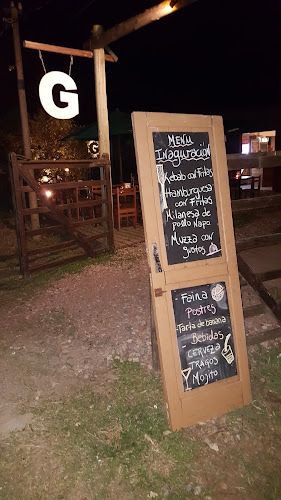 G
G
MENU
Inaguración
Kebabo con Fritas
Hamburguesa
con Fritas
Milanesa de
pollo Napo
Muzza con
gustos
- Faina
Postres
-Tarta de banana
- Bebidas
CERVEZA
TRAGOS
Mojito